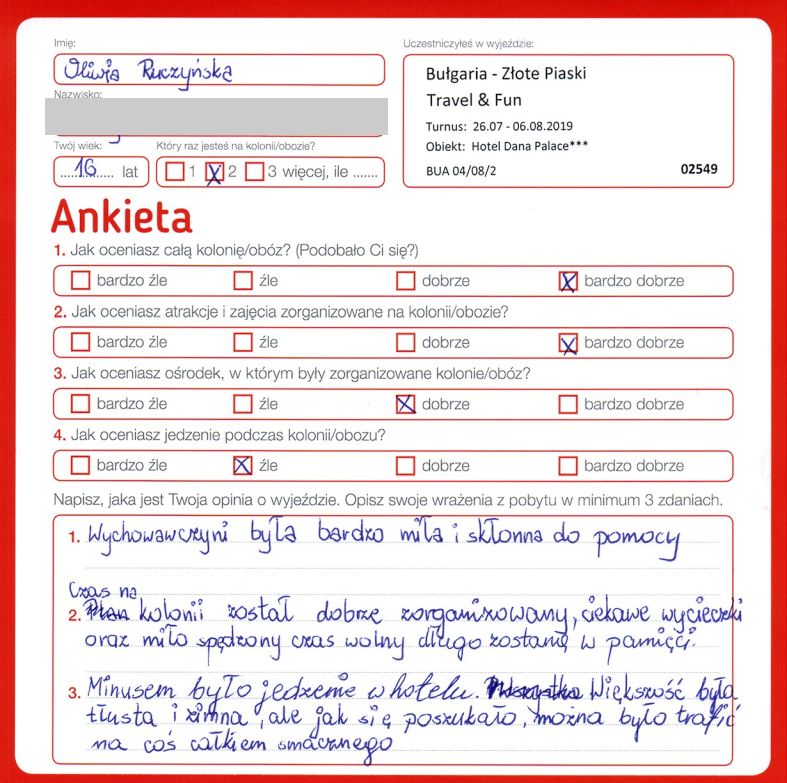 Imię:
Oliwia Ruczyńska
Nazwisko:
Twój wiek:
16 lat
Który raz jesteś na kolonii/obozie?
1 X 2 3 więcej, ile .......
Uczestniczyłeś w wyjeździe:
Bułgaria - Złote Piaski
Travel & Fun
Turnus: 26.07 - 06.08.2019
Obiekt: Hotel Dana Palace***
BUA 04/08/2 02549
Ankieta
1. Jak oceniasz całą kolonię/obóz? (Podobało Ci się?)
bardzo źle źle dobrze X bardzo dobrze
2. Jak oceniasz atrakcje i zajęcia zorganizowane na kolonii/obozie?
bardzo źle źle dobrze X bardzo dobrze
3. Jak oceniasz ośrodek, w którym były zorganizowane kolonie/obóz?
bardzo źle źle X dobrze bardzo dobrze
4. Jak oceniasz jedzenie podczas kolonii/obozu?
bardzo źle X źle dobrze bardzo dobrze
Napisz, jaka jest Twoja opinia o wyjeździe. Opisz swoje wrażenia z pobytu w minimum 3 zdaniach.
1. Wychowawczyni była bardzo miła i skłonna do pomocy
Czas na
2. Plan kolonii został dobrze zorganizowany, ciekawe wycieczki
oraz miło spędzony czas wolny długo zostanę w pamięci.
3. Minusem było jedzenie w hotelu. Wszystko Większość była
tłusta i zimna, ale jak się poszukało, można było trafić
na coś całkiem smacznego